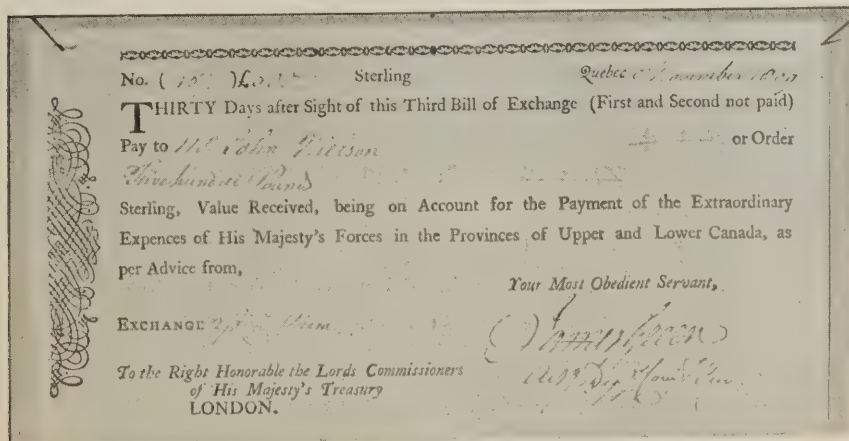 No. ( )£ Sterling Quebec November
THIRTY Days after Sight of this Third Bill of Exchange (First and Second not paid)
Pay to Mr. John or Order
Five hundred Pounds
Sterling, Value Received, being on Account for the Payment of the Extraordinary
Expences of His Majesty's Forces in the Provinces of Upper and Lower Canada, as
per Advice from,
Your Most Obedient Servant,
EXCHANGE
James Green
To the Right Honorable the Lords Commissioners
of His Majesty's Treasury
LONDON.